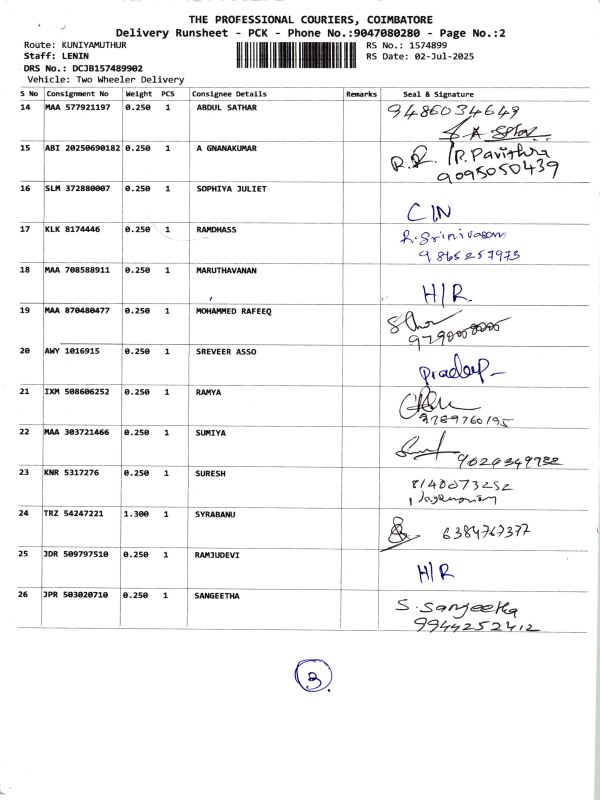 THE PROFESSIONAL COURIERS, COIMBATORE
Delivery Runsheet - PCK - Phone No.:9047080280 - Page No.:2
Route: KUNIYAMUTHUR RS No.: 1574899
Staff: LENIN RS Date: 02-Jul-2025
DRS No.: DCJB157489902
Vehicle: Two Wheeler Delivery
S No Consignment No Weight PCS Consignee Details Remarks Seal & Signature
14 MAA 577921197 0.250 1 ABDUL SATHAR 9486034649
15 ABI 20250690182 0.250 1 A GNANAKUMAR R.R. /R.Pavithra
9095050439
16 SLM 372880007 0.250 1 SOPHIYA JULIET
C/N
17 KLK 8174446 0.250 1 RAMDHASS R.Srinivasan
9865257973
18 MAA 708588911 0.250 1 MARUTHAVANAN
H/R
19 MAA 870480477 0.250 1 MOHAMMED RAFEEQ
20 AWY 1016915 0.250 1 SREVEER ASSO
pradeep
21 IXM 508606252 0.250 1 RAMYA
9789760195
22 MAA 303721466 0.250 1 SUMIYA
23 KNR 5317276 0.250 1 SURESH
8148073252
24 TRZ 54247221 1.300 1 SYRABANU
6384767377
25 JDR 509797510 0.250 1 RAMJUDEVI
H/R
26 JPR 503020710 0.250 1 SANGEETHA S. Sangeetha
9944252412
3.